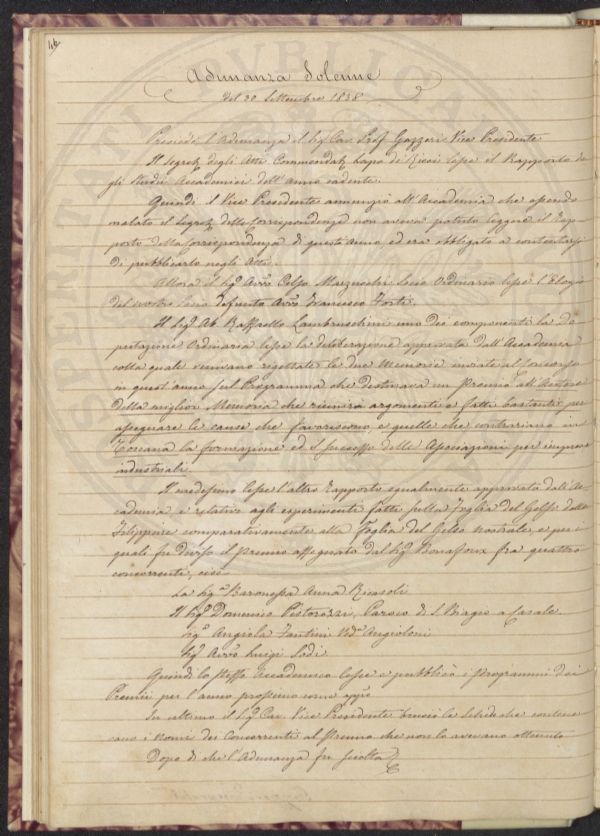 46
Adunanza Solenne
del 30 Settembre 1838
Presiede l'Adunanza il Sig. Cav. Prof. Gazzeri Vice Presidente
Il Segret. degli Atti Commendat. Lapo de Ricci lesse il Rapporto de
gli Studii Accademici dell'anno cadente.
Quindi il Vice Presidente annunziò all'Accademia che essendo
malato il Segret. della Corrispondenza non aveva potuto leggere il Rap
porto della Corrispondenza di quest'anno ed era obbligato a contentarsi
di pubblicarlo negli Atti.
Allora il Sig. Avv. Celso Marzucchi Socio Ordinario lesse l'Elogio
del nostro Socio defunto Avv. Francesco Forti.
Il Sig. Ab. Raffaello Lambruschini uno dei componenti la De
putazione Ordinaria lesse la deliberazione approvata dall'Accademia
colla quale venivano rigettate le due Memorie inviate al Concorso
in quest'anno sul Programma che destinava un premio all'Autore
della miglior Memoria che riunirà argomenti e fatti bastanti per
assegnare le cause che favoriscono e quelle che contrariano in
Toscana la formazione ed il successo delle Associazioni per imprese
industriali.
Il medesimo lesse l'altro Rapporto egualmente approvato dall'Ac
cademia e relativo agli esperimenti fatti sulla Foglia del Gelso delle
Filippine comparativamente alla Foglia del Gelso nostrale, e per i
quali fu diviso il premio assegnato dal Sig. Bonafoux fra quattro
concorrenti, cioè
La Sig.a Baronessa Anna Ricasoli
Il Sig. Domenico Pistorozzi, Paroco di S. Biagio a Casale
Sig.a Angiola Fantini Ved.a Angioloni
Sig. Avv. Luigi Lodi
Quindi lo stesso Accademico lesse e pubblicò i programmi dei
Premii per l'anno prossimo come app.o
In ultimo il Sig. Cav. Vice Presidente bruciò le Schede che contene
vano i nomi dei Concorrenti al Premio che non lo avevano ottenuto
Dopo di che l'Adunanza fu sciolta